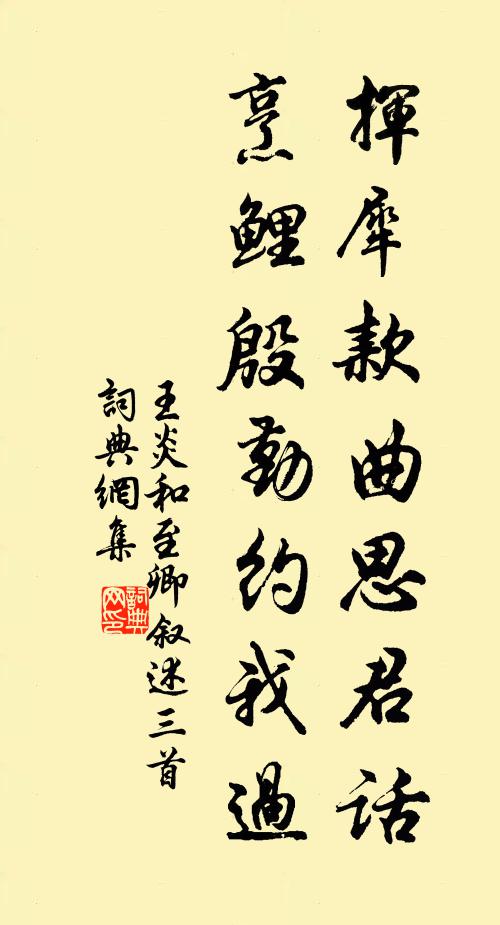 揮犀款曲思君話
烹鯉殷勤約我過
王炎和至卿叙述三首
詞典網集
詞典网印